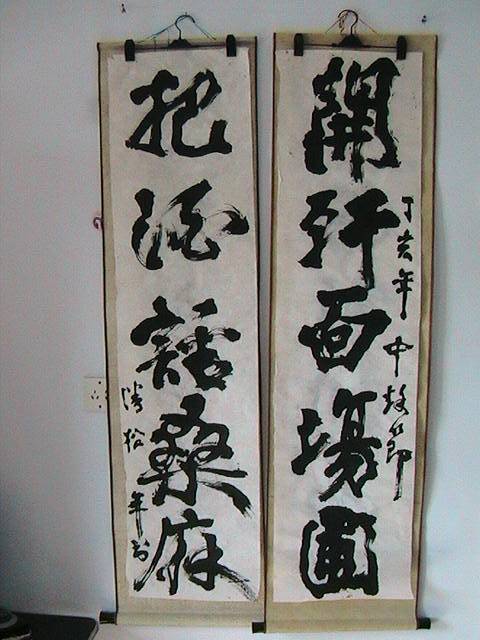 開軒面場圃
丁亥年中秋節
把酒話桑麻